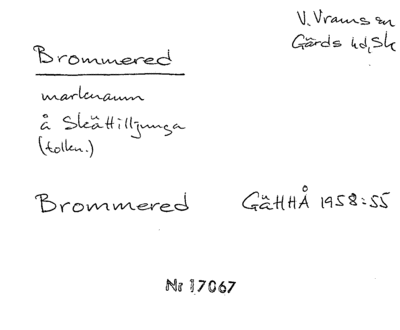 V. Vrams sn
Gärds hd, Sk
Brommered
marknamn
å Skättilljunga
(tolkn.)
Brommered GäHHÅ 1958:55
Nr 17067